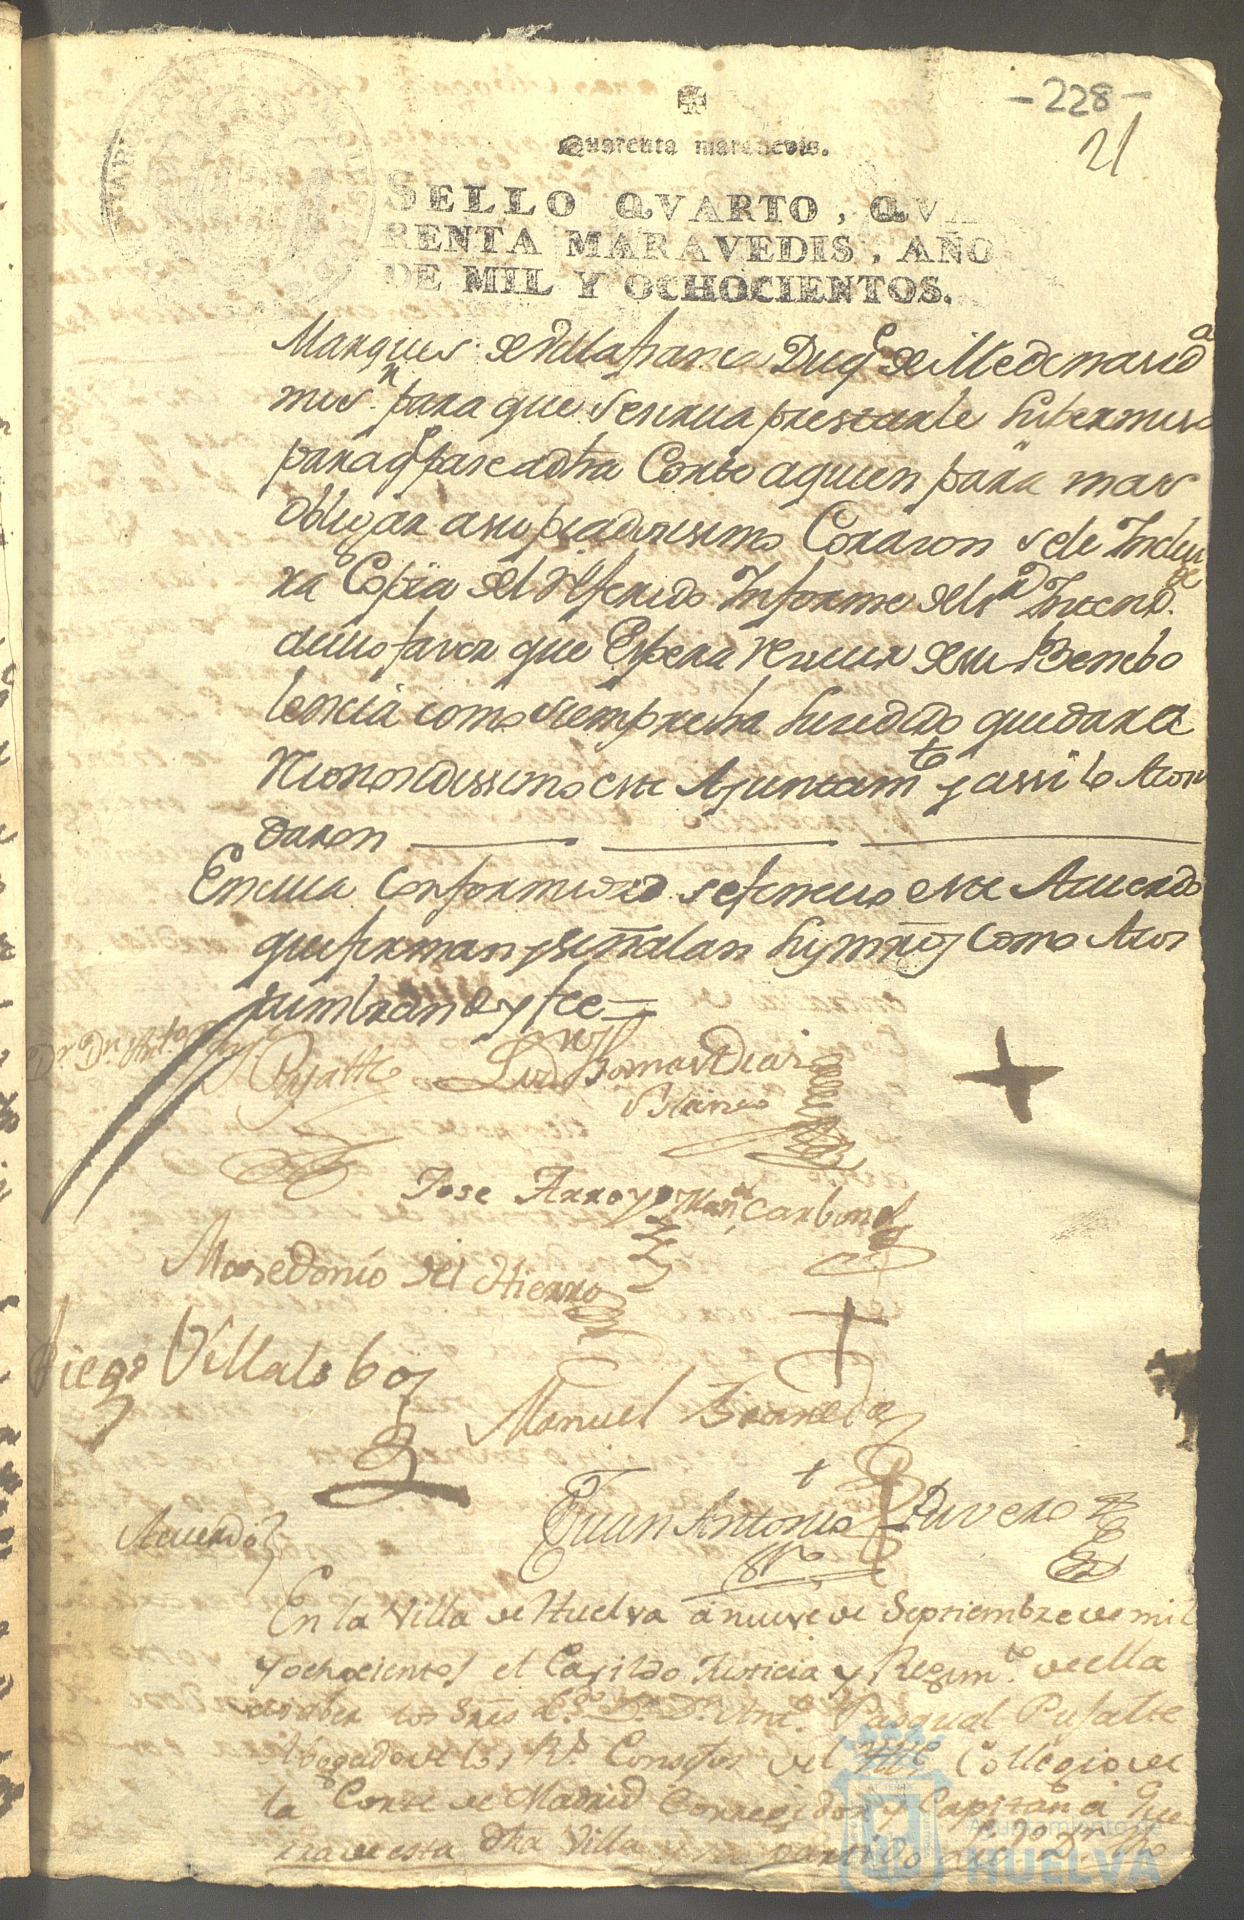 -228-
21
Quarenta maravedis.
SELLO QVARTO, QVA
RENTA MARAVEDIS, AÑO
DE MIL Y OCHOCIENTOS.
Marques de Villafranca Duqe de Medinasida
mis para que se sirua prestarle su permiso
para q pase a dha Corte a quien para mas
obligar a su piadosisimo Corazon se le Inclui
ra Copia del referido Informe del Sor Intendte
cuio favor que Espera resiuir de su Benebo
lencia como siempre ha susedido quedara
reconosidissimo este Ajuntamto y assi lo Acor
daron
En cuia Conformidad se fenecio este Acuerdo
que firman y señalan sus mrds como Acos
tumbran Doy fee
Dr Dn Anto
Pujalte
Blanco
Jose Arroyo Manl Carbonel
Masedonio del Hierro
Diego Villalobos
Manuel
Juan Antonio Rivero
Acuerdo
En la Villa de Huelva a nueve de Septiembre de mil
y ochocientos el Cavildo Justicia y Regimto de ella
a saber los Sres Dn Anto Pasqual Pujalte
Abogado de los Rs Consejos del Colegio de
la Corte de Madrid Corregidor y Capitan a Gue
rra de esta dha Villa y su partido
Ayuntamiento de
HUELVA